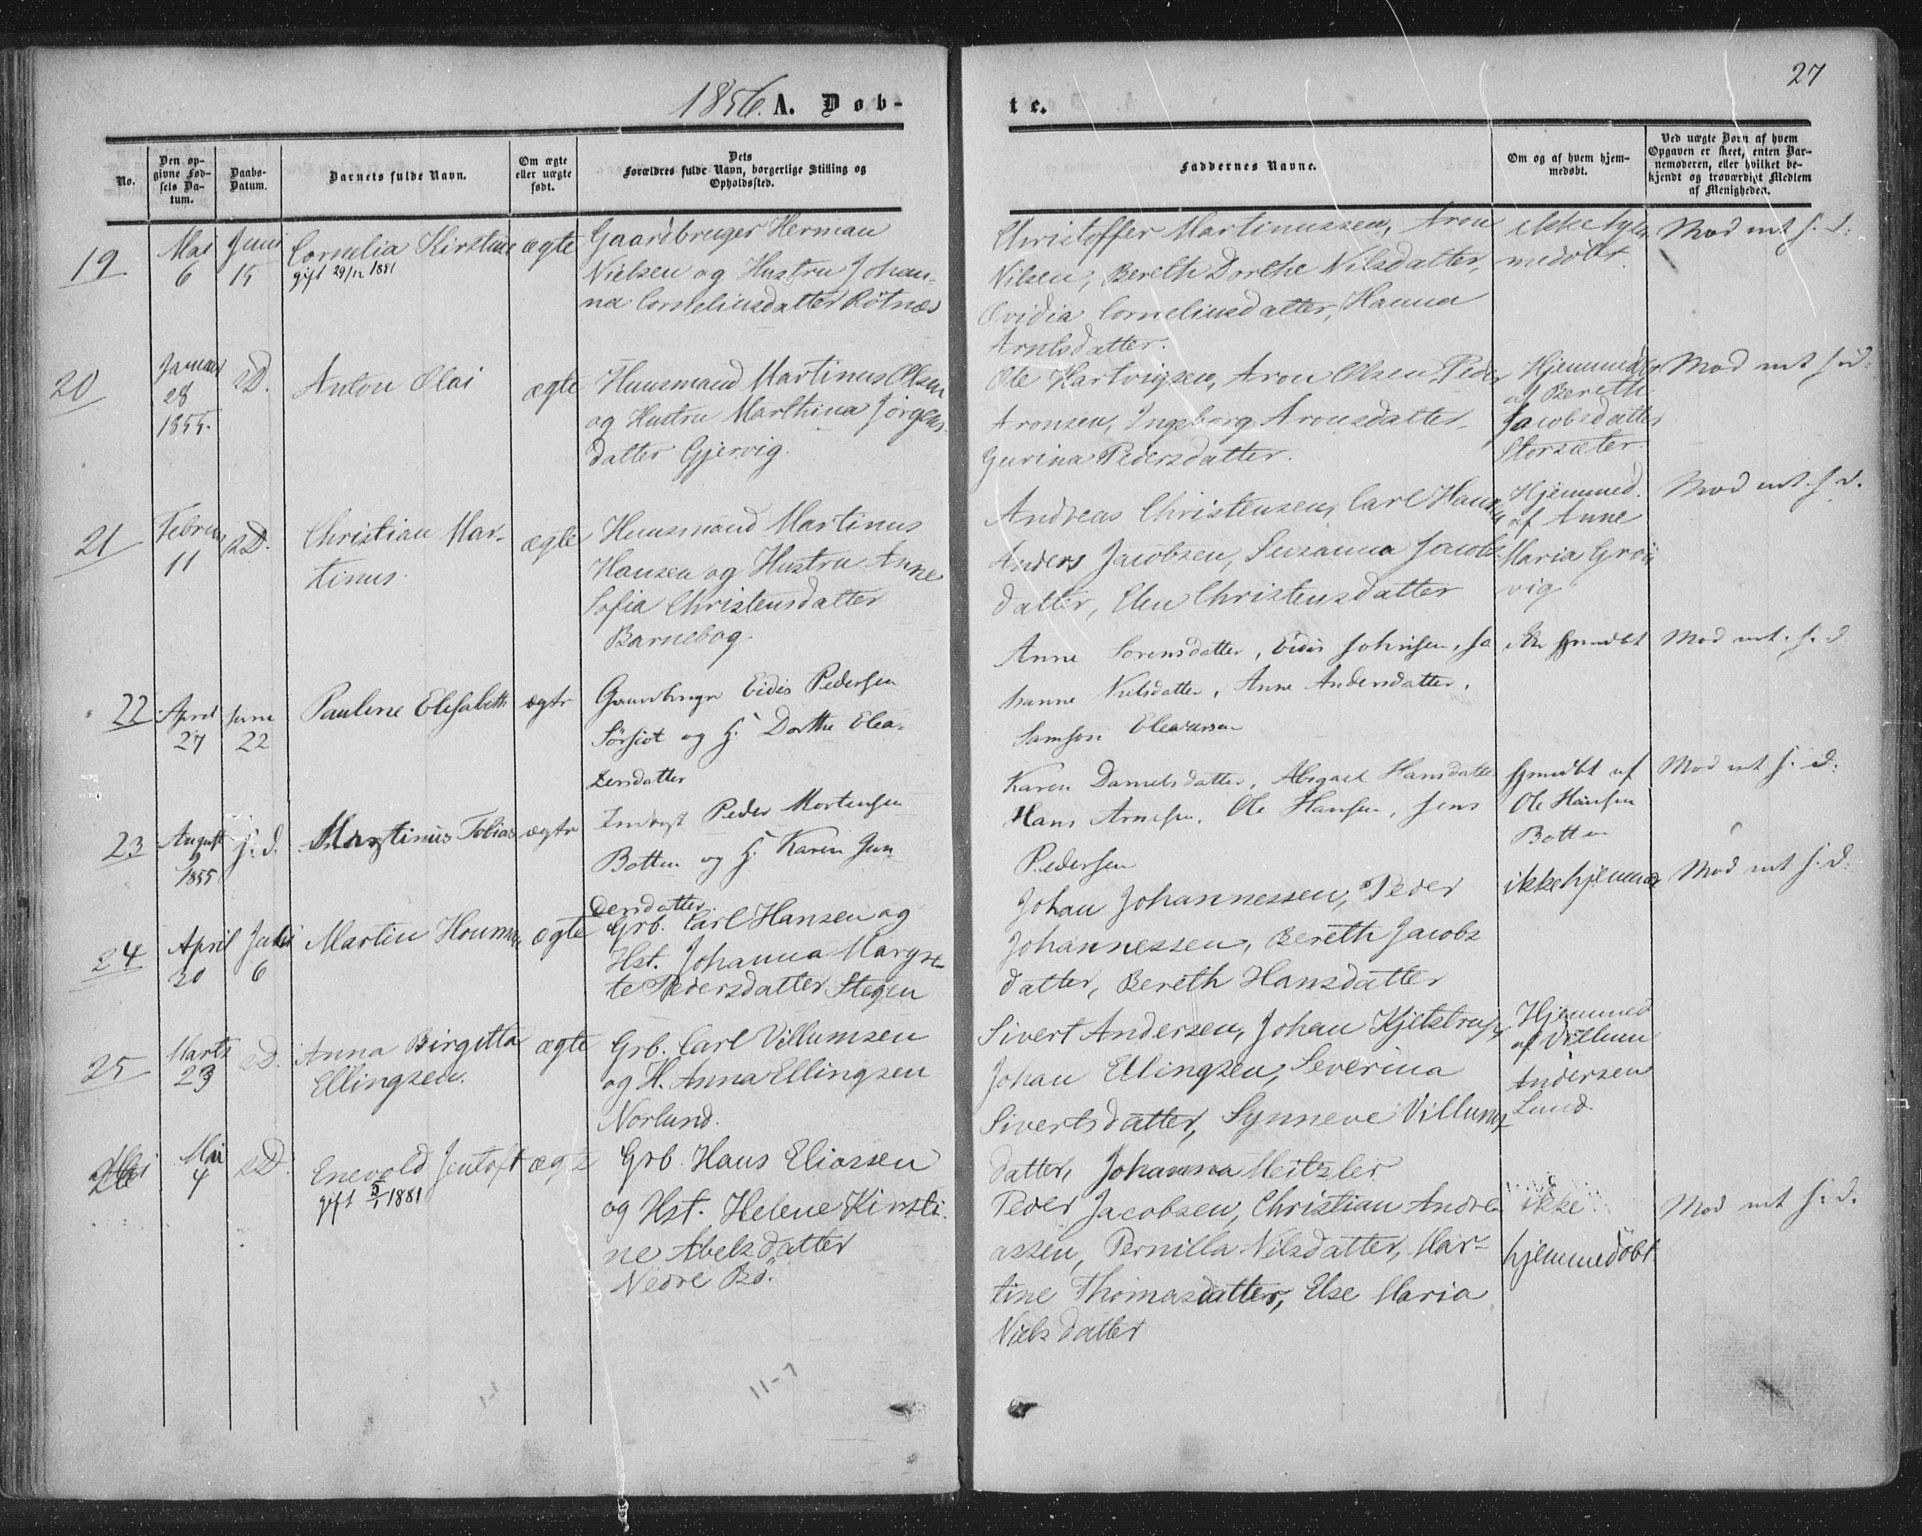 1856. A. Döb-
te.
27
No.
Den op-
givne Fød-
sels Da-
tum.
Daabs-
Datum.
Barnets fulde Navn.
Om ægte
eller uægte
født.
Dets
Forældres fulde Navn, borgerlige Stilling og
Opholdssted.
Faddernes Navne.
Om og af hvem hjem-
medøbt.
Ved uægte Børn af hvem
Opgaven er skeet, enten Bar-
nemoderen, eller hvilket be-
kjendt og troværdigt Medlem
af Menigheden.
19
Mai
6
Juni
15
Cornelia Kirstine
gift 29/12 1881
ægte
Gaardbruger Herman
Nielsen og Hustru Johan-
na Corneliusdatter Rötnæs
Christoffer Martinussen, Aron
Nilsen, Bereth Dorthe Nilsdatter,
Ovidia Corneliusdatter, Hanna
Arntsdatter.
ikke hjem
medöbt.
Mod nt f. d.
20
Januar
28
1855.
s D.
Anton Olai
ægte
Huusmand Martinus Olsen
og Hustru Marthina Jörgens-
datter Gjervig.
Ole Hartvigsen, Aron Olsen, Peder
Aronsen, Ingeborg Aronsdatter,
Gurina Pedersdatter.
Hjemmed
af Bereth
Jacobsdatter
Storsæter.
Mod nt f. d.
21
Februar
11
s D.
Christian Mar-
tinus.
ægte
Huusmand Martinus
Hansen og Hustru Anne
Sofia Christensdatter
Barnebog.
Andreas Christensen, Carl Hansen
Anders Jacobsen, Susanna Jacobs
datter, Elen Christensdatter
Hjemmed.
af Anne
Maria Gröv
vig
Mod nt. f. d.
22
April
27
June
22
Pauline Elisabeth
ægte
Gaardbruger Eidis Pedersen
Sörfiot og H. Dorthe Elea-
zersdatter
Anne Sorensdatter, Eidis Johnsen, Jo
hanne Nielsdatter, Anne Andersdatter,
Samson Eleazersen
Mod nt. f. d.
23
August
2
1855
s. d.
Martinus Tobias
ægte
Inderst Peder Mortensen
Botten og H. Karen Gun-
dersdatter.
Karen Danielsdatter, Abigael Hansdatter
Hans Arnesen, Ole Hansen, Jens
Pedersen
hjmdbt af
Ole Hansen
Botten
Mod nt f. d.
24
April
20
Juli
6
Martin Houman
ægte
Grb. Carl Hansen og
Hst. Johanna Margre-
te Pedersdatter Stegen
Johan Johannessen, Peder
Johannessen, Bereth Jacobs
datter, Bereth Hansdatter
ikke hjemmed
Mod nt f. d.
25
Marts
23
s D.
Anna Birgitta
Ellingsen.
ægte
Grb. Carl Villumsen
og H. Anna Ellingsen
Norlund.
Sivert Andersen, Johan Kjelstrup,
Johan Ellingsen, Severina
Sivertsdatter, Synneve Villums
datter, Johanna Meitzler
Hjemmed
af Villum
Andersen
Lund.
26
Mai
4
s D.
Enevold Jentoft
gift 5/1 1881
ægte
Grb. Hans Eliassen
og Hst. Helene Kirsti-
ne Abelsdatter
Nedre Bö.
Peder Jacobsen, Christian Andre
assen, Pernilla Nilsdatter, Mar-
tine Thomasdatter, Else Maria
Nielsdatter
ikke
hjemmedöbt.
Mod nt f. d.